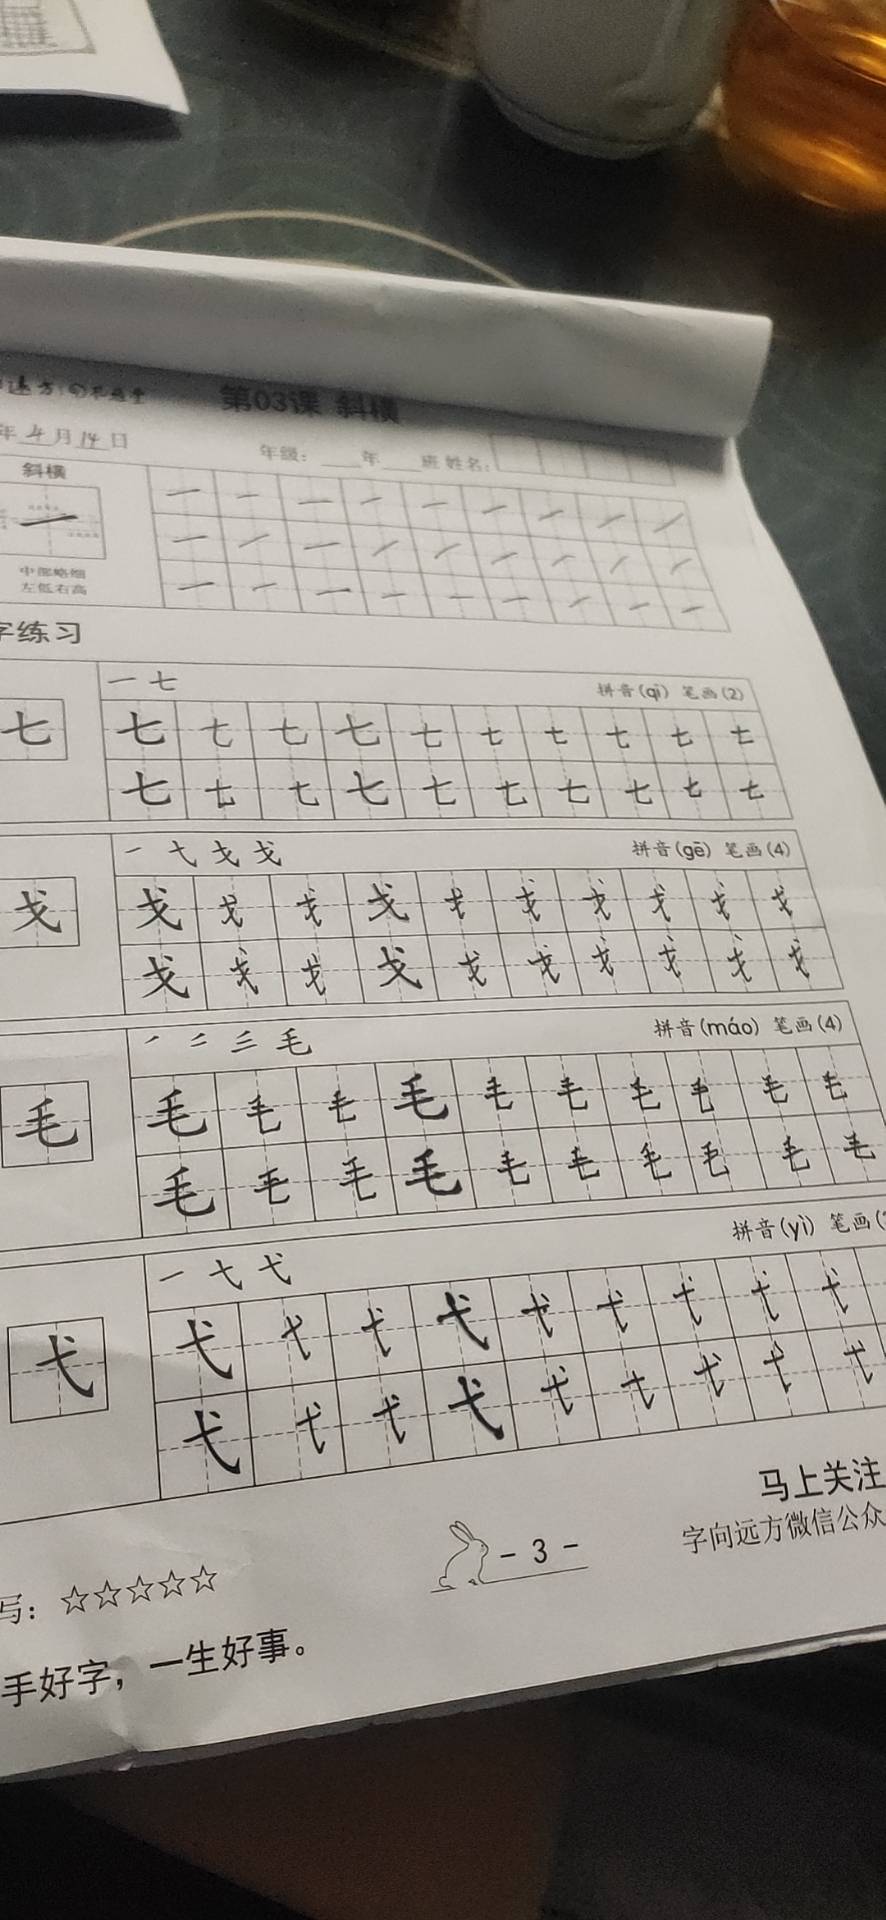 第03课 斜横
年4月14日 年级：____年____班 姓名：
斜横
中部略细
左低右高
字练习
一 七 拼音(qī) 笔画(2)
七 七 七 七 七 七 七 七 七 七 七
七 七 七 七 七 七 七 七 七 七
戈 拼音(gē) 笔画(4)
戈 戈 戈 戈 戈 戈 戈 戈 戈 戈 戈
戈 戈 戈 戈 戈 戈 戈 戈 戈 戈
毛 拼音(máo) 笔画(4)
毛 毛 毛 毛 毛 毛 毛 毛 毛 毛 毛
毛 毛 毛 毛 毛 毛 毛 毛 毛 毛
一 弋 拼音(yì) 笔画(
弋 弋 弋 弋 弋 弋 弋 弋 弋 弋
弋 弋 弋 弋 弋 弋 弋 弋 弋
马上关注
字向远方微信公众
- 3 -
写：☆☆☆☆☆
手好字，一生好事。